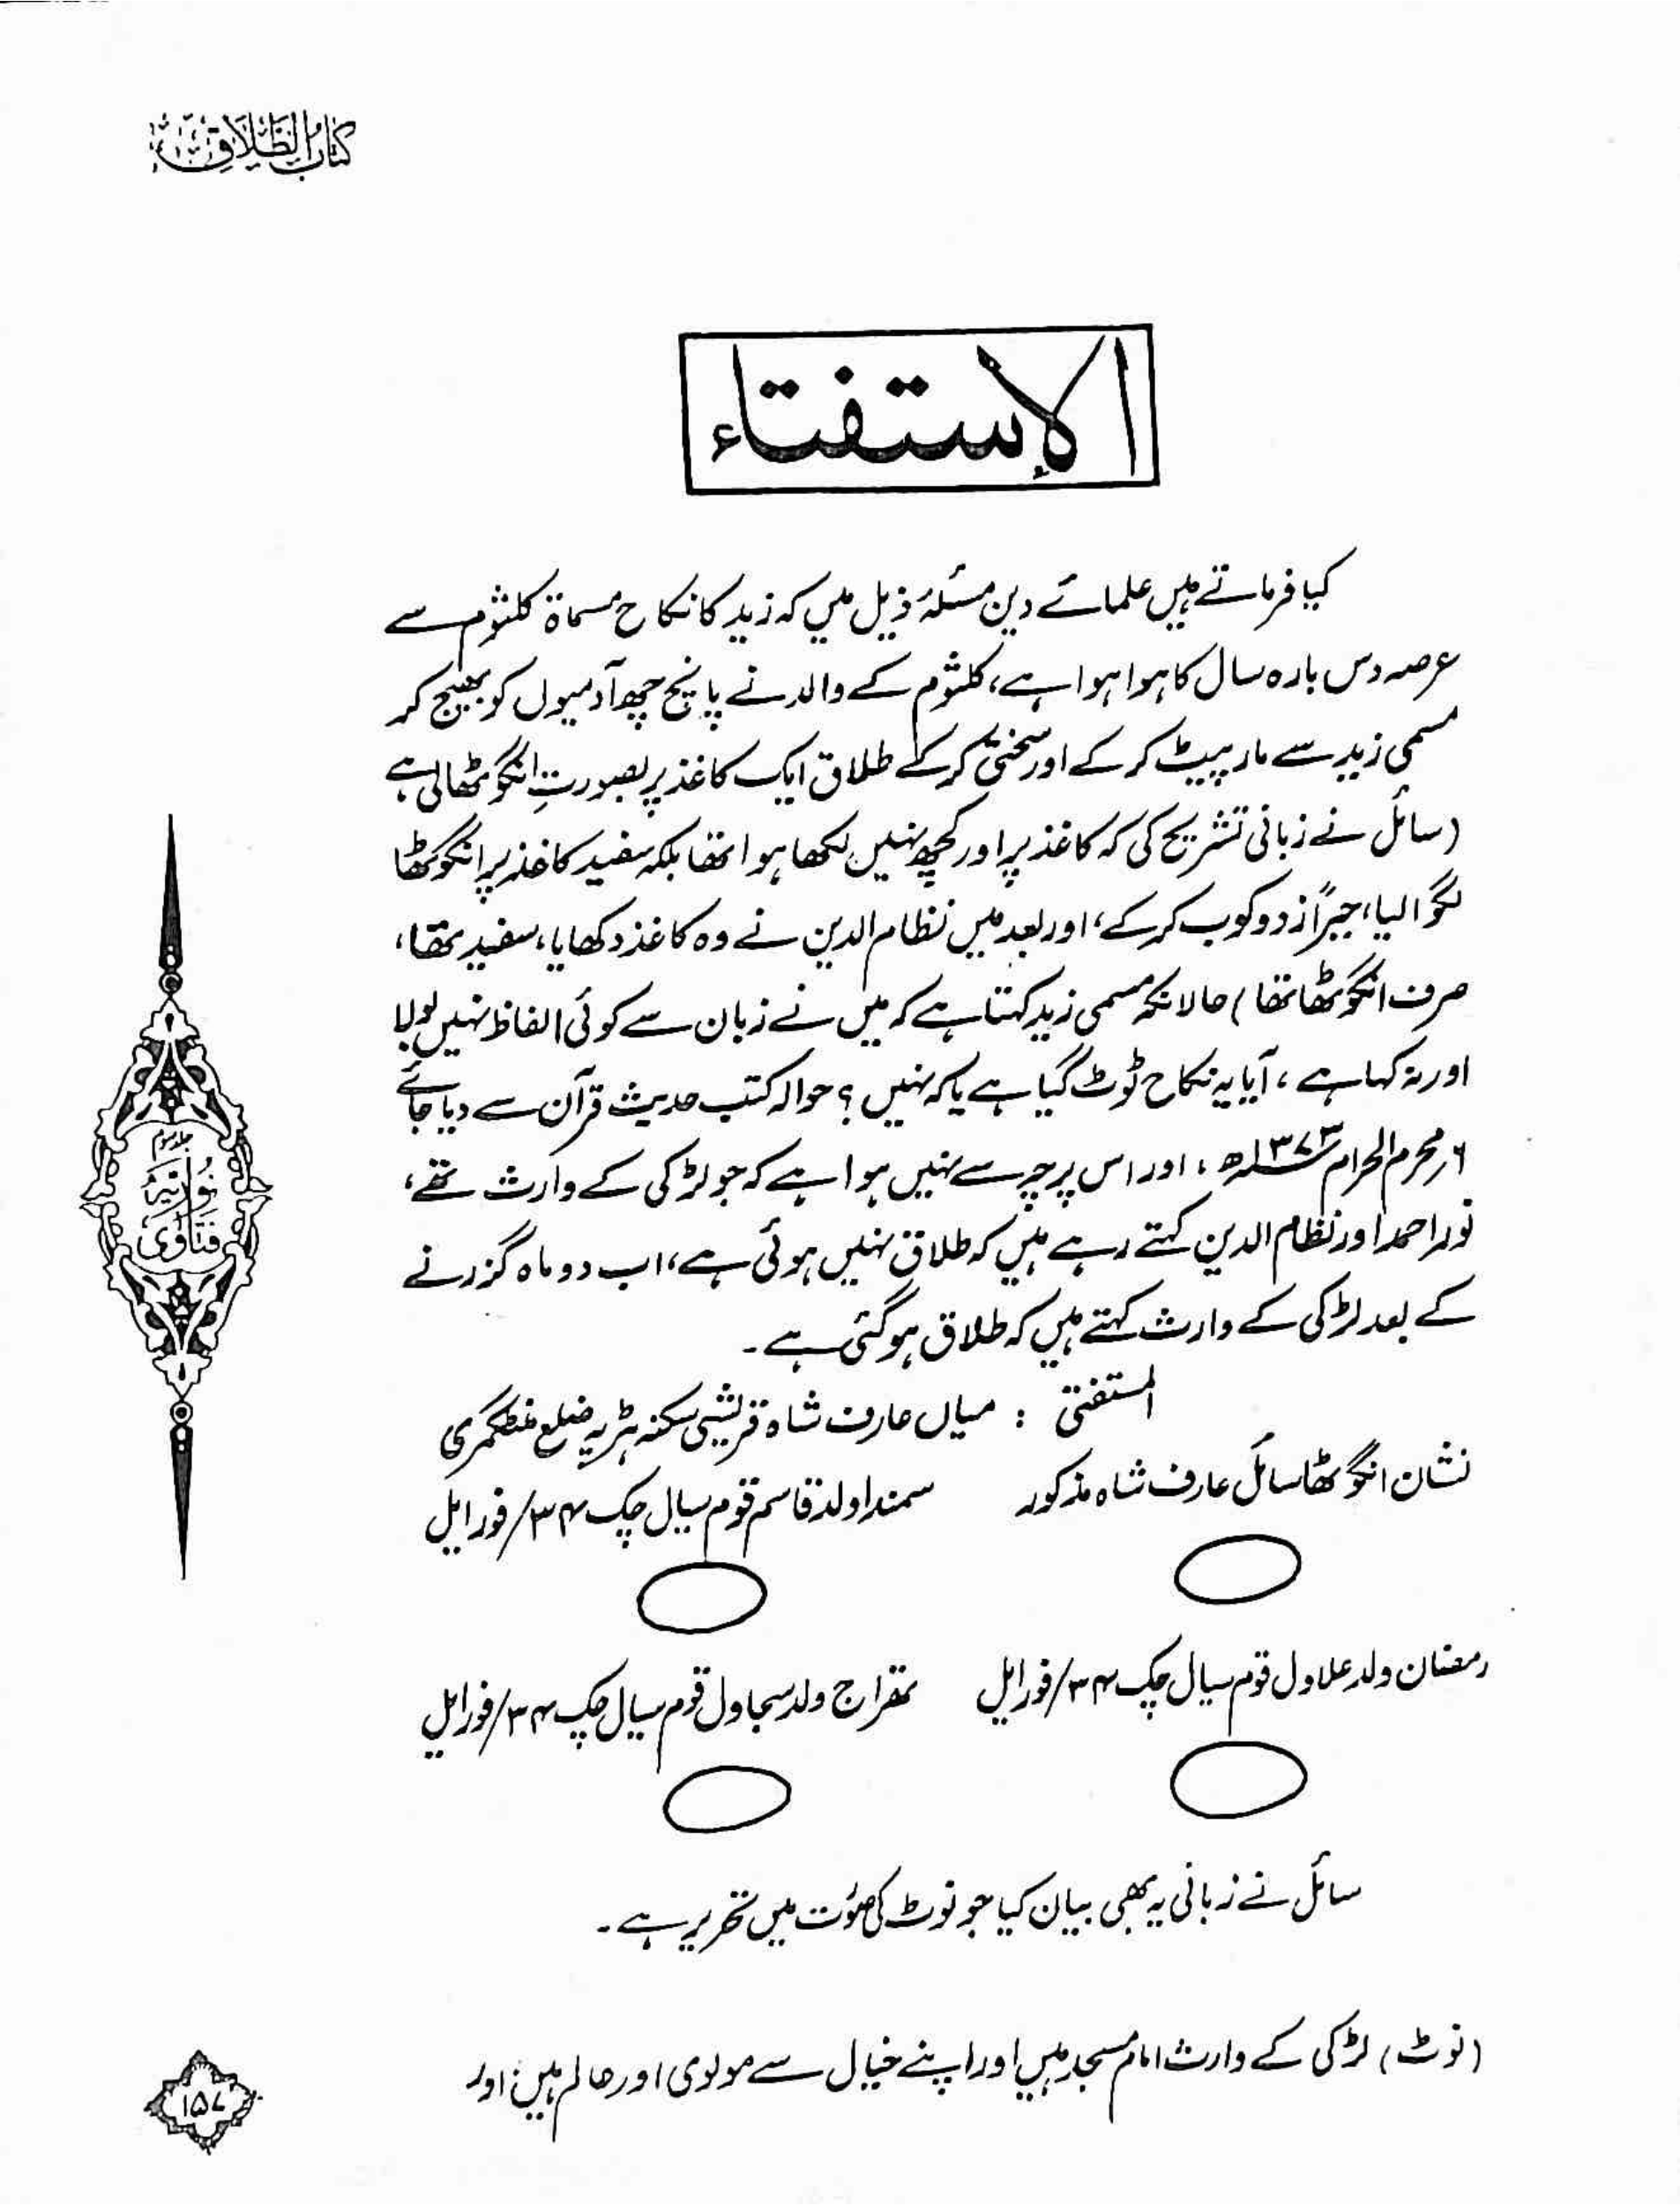 کتاب الطلاق
الإستفتاء
کیا فرماتے ہیں علمائے دین مسئلہ ذیل میں کہ زید کا نکاح مسماۃ کلثوم سے
عرصہ دس بارہ سال کا ہوا ہوا ہے، کلثوم کے والد نے پانچ چھ آدمیوں کو بھیج کر
مسمی زید سے مار پیٹ کر کے اور سختی کر کے طلاق ایک کاغذ پر بصورتِ انگوٹھا لی ہے
(سائل نے زبانی تشریح کی کہ کاغذ پر اور کچھ نہیں لکھا ہوا تھا بلکہ سفید کاغذ پر انگوٹھا
لگوا لیا، جبراً زدوکوب کر کے، اور بعد میں نظام الدین نے وہ کاغذ دکھایا، سفید تھا،
صرف انگوٹھا تھا) حالانکہ مسمی زید کہتا ہے کہ میں نے زبان سے کوئی الفاظ نہیں بولا
اور نہ کہا ہے، آیا یہ نکاح ٹوٹ گیا ہے یا کہ نہیں؟ حوالہ کتب حدیث قرآن سے دیا جائے
۶ محرم الحرام ۱۳۷۳ھ، اور اس پرچہ سے نہیں ہوا ہے کہ جو لڑکی کے وارث تھے،
نور احمد اور نظام الدین کہتے رہے ہیں کہ طلاق نہیں ہوئی ہے، اب دو ماہ گزرنے
کے بعد لڑکی کے وارث کہتے ہیں کہ طلاق ہوگئی ہے۔
المستفتی : میاں عارف شاہ قریشی سکنہ ہڑپہ ضلع منٹگمری
نشان انگوٹھا سائل عارف شاہ مذکور    سمندا ولد قاسم قوم سیال چک ۳۴/فورایل
رمضان ولد علاول قوم سیال چک ۳۴/فورایل    ولد سجاول قوم سیال چک ۳۴/فورایل
سائل نے زبانی یہ بھی بیان کیا جو نوٹ کی صورت میں تحریر ہے۔
(نوٹ) لڑکی کے وارث امام مسجد ہیں اور اپنے خیال سے مولوی اور عالم ہیں، اور
جلد سوم
نوریہ
فتاویٰ
۱۵۷